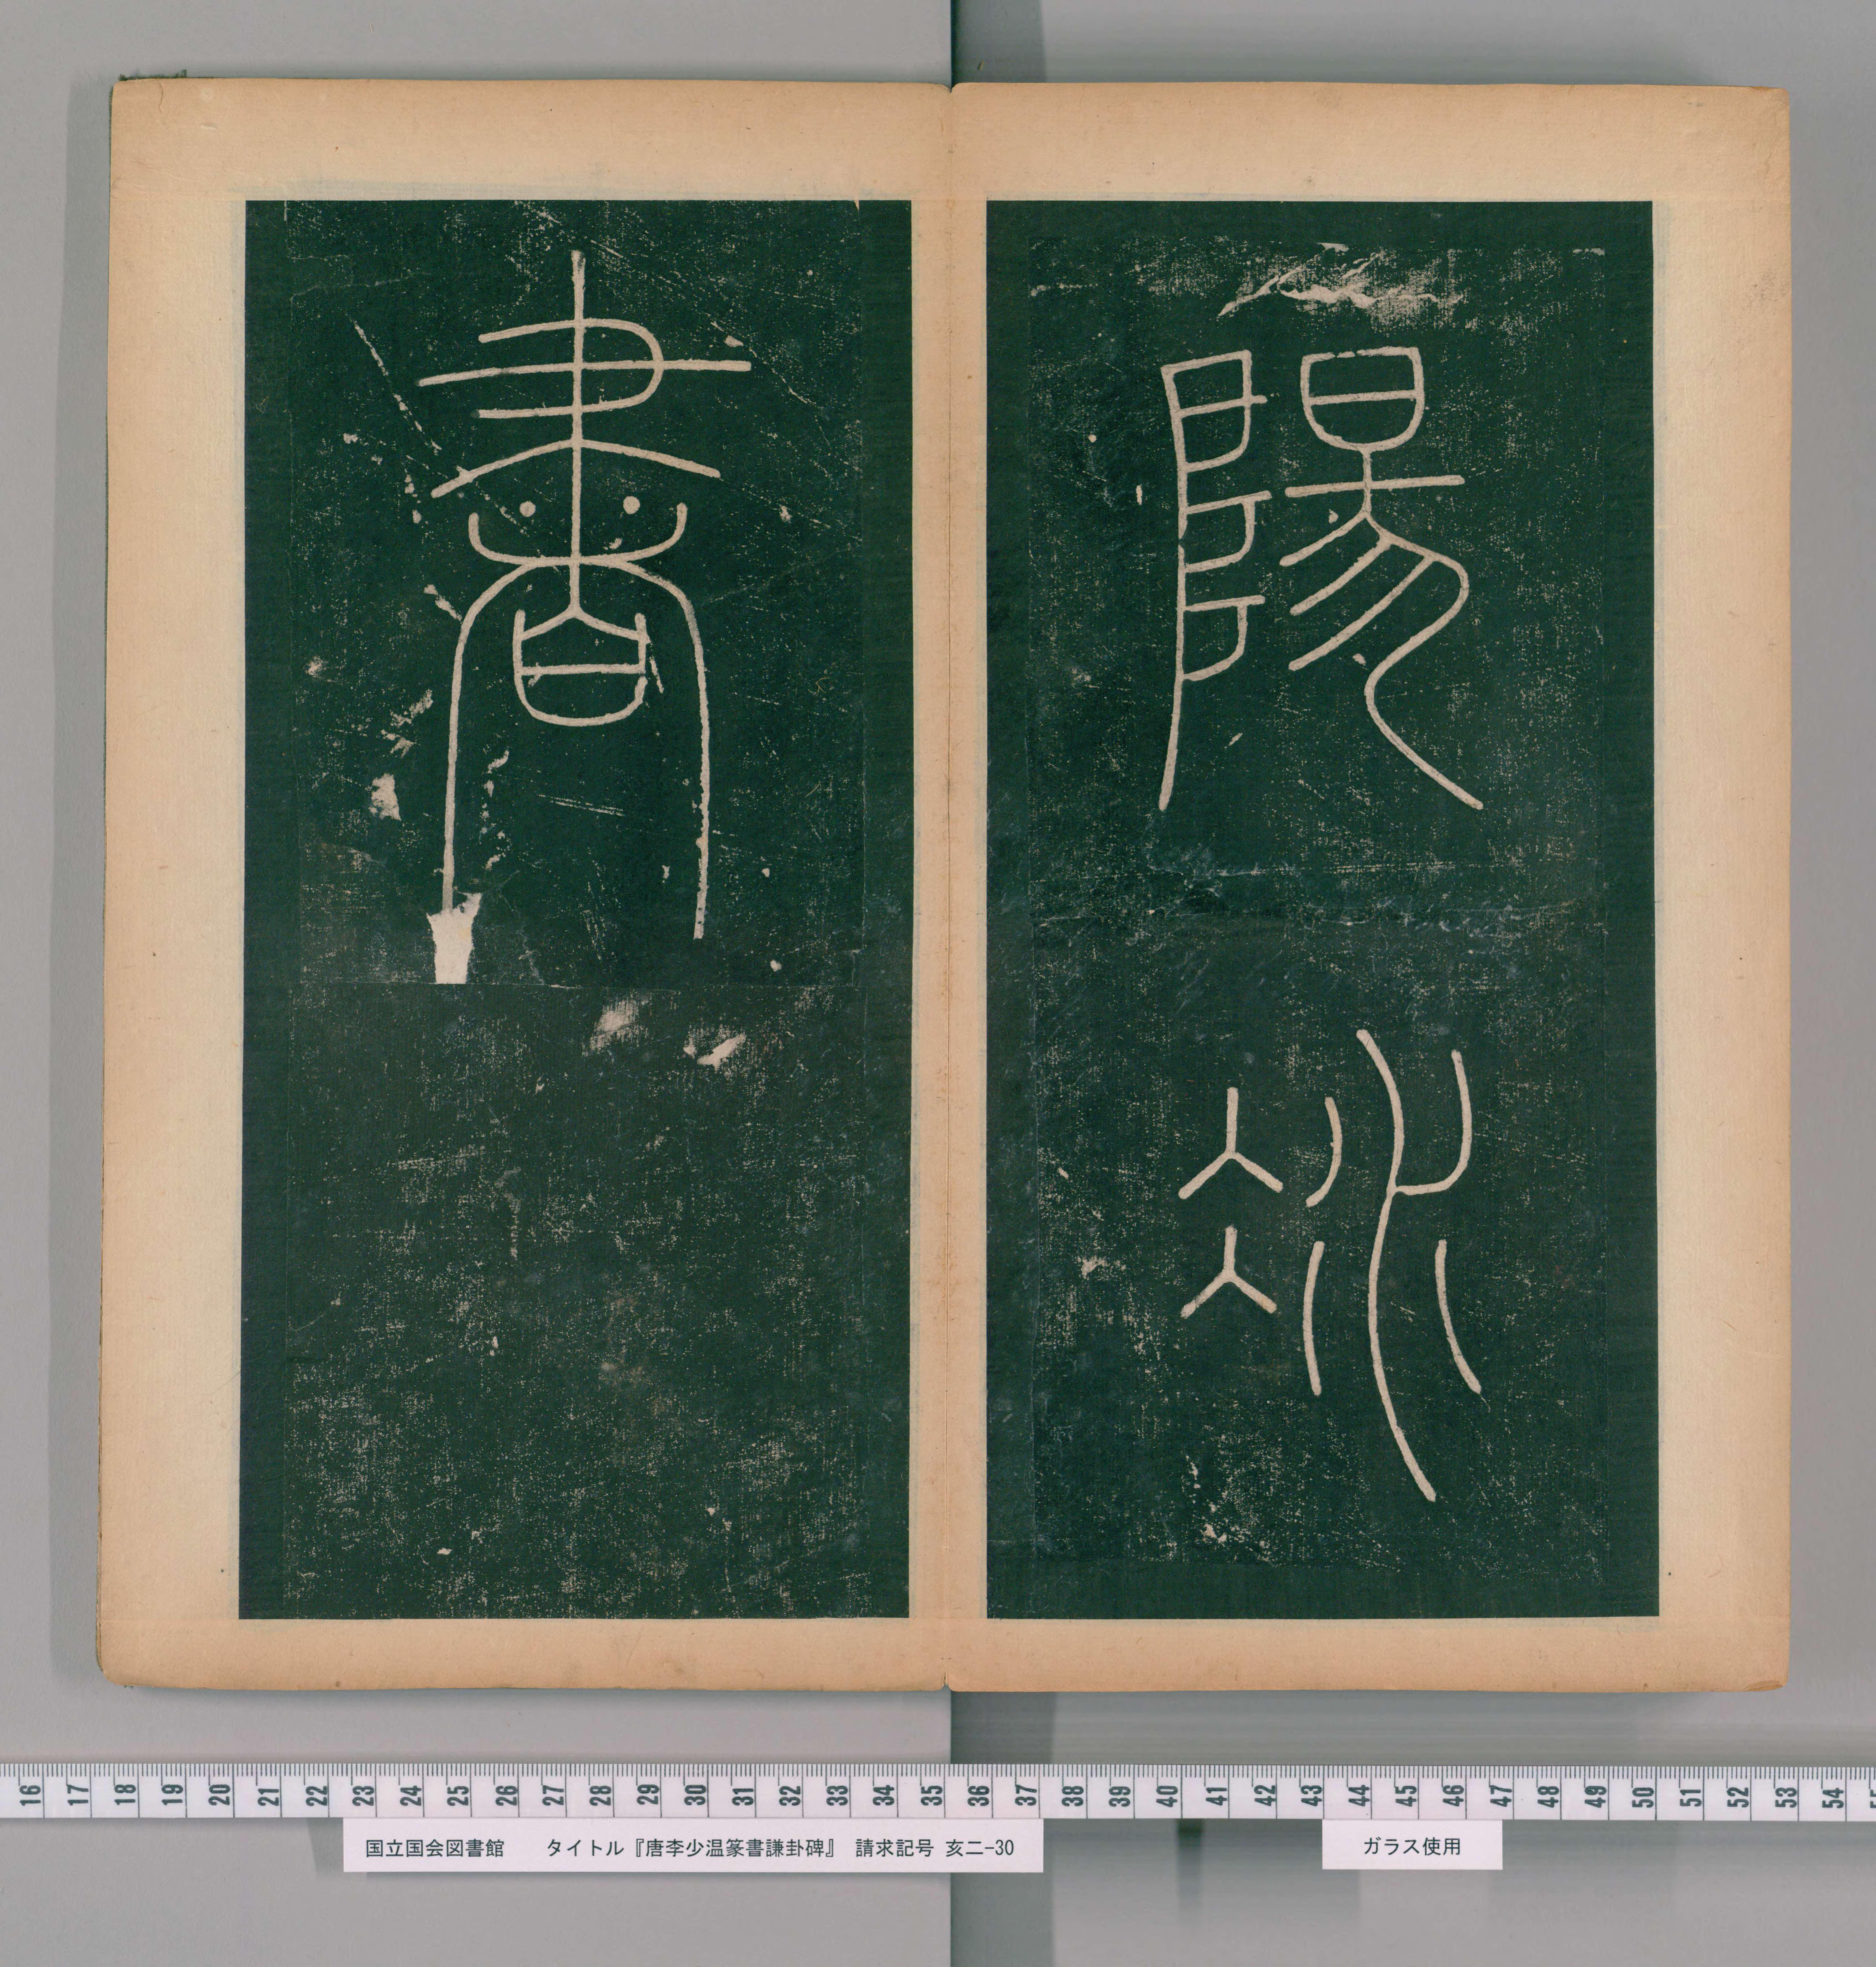 陽冰
書
16 17 18 19 20 21 22 23 24 25 26 27 28 29 30 31 32 33 34 35 36 37 38 39 40 41 42 43 44 45 46 47 48 49 50 51 52 53 54
国立国会図書館 タイトル『唐李少温篆書謙卦碑』 請求記号 亥二-30
ガラス使用